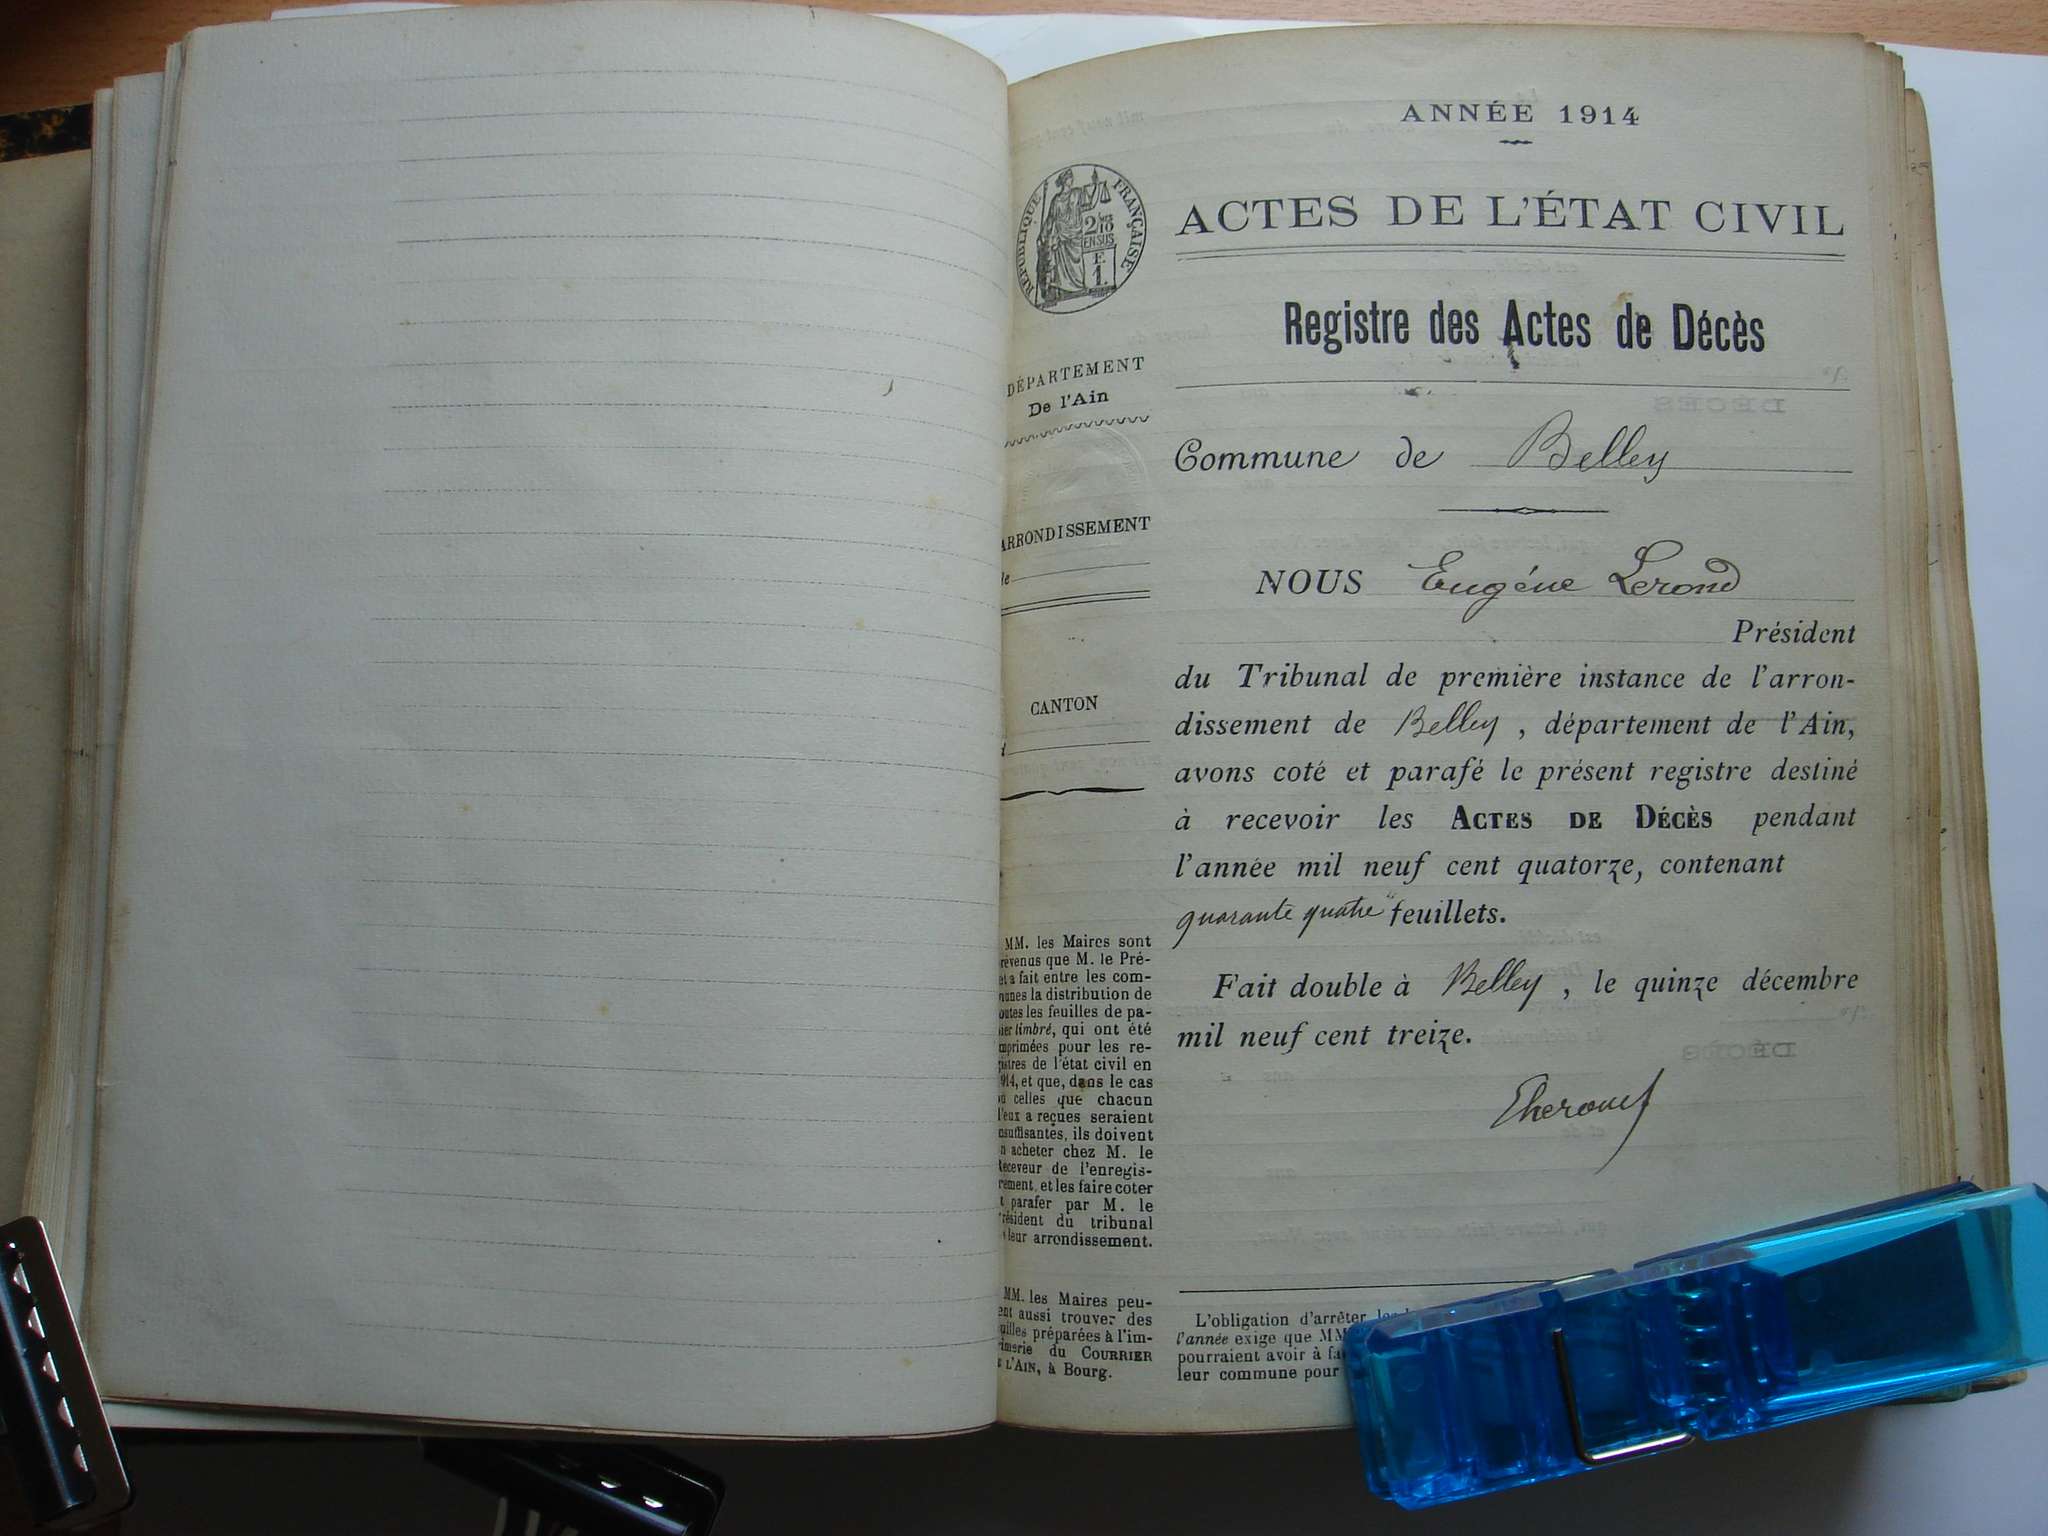 ANNÉE 1914
RÉPUBLIQUE FRANÇAISE
2/10
EN SUS
E
1
ACTES DE L'ÉTAT CIVIL
Registre des Actes de Décès
DÉPARTEMENT
De l'Ain
ARRONDISSEMENT
de
CANTON
Commune de Belley
NOUS Eugéne Lerond
Président
du Tribunal de première instance de l'arron-
dissement de Belley, département de l'Ain,
avons coté et parafé le présent registre destiné
à recevoir les ACTES DE DÉCÈS pendant
l'année mil neuf cent quatorze, contenant
quarante quatre feuillets.
Fait double à Belley, le quinze décembre
mil neuf cent treize.
MM. les Maires sont
révenus que M. le Pré-
et a fait entre les com-
munes la distribution de
outes les feuilles de pa-
ier timbré, qui ont été
mprimées pour les re-
gistres de l'état civil en
914, et que, dans le cas
où celles que chacun
d'eux a reçues seraient
nsuffisantes, ils doivent
n acheter chez M. le
Receveur de l'enregis-
rement, et les faire coter
t parafer par M. le
Président du tribunal
leur arrondissement.
MM. les Maires peu-
ent aussi trouver des
uilles préparées à l'im-
rimerie du COURRIER
E L'AIN, à Bourg.
L'obligation d'arrêter
l'année exige que MM
pourraient avoir à
leur commune pour